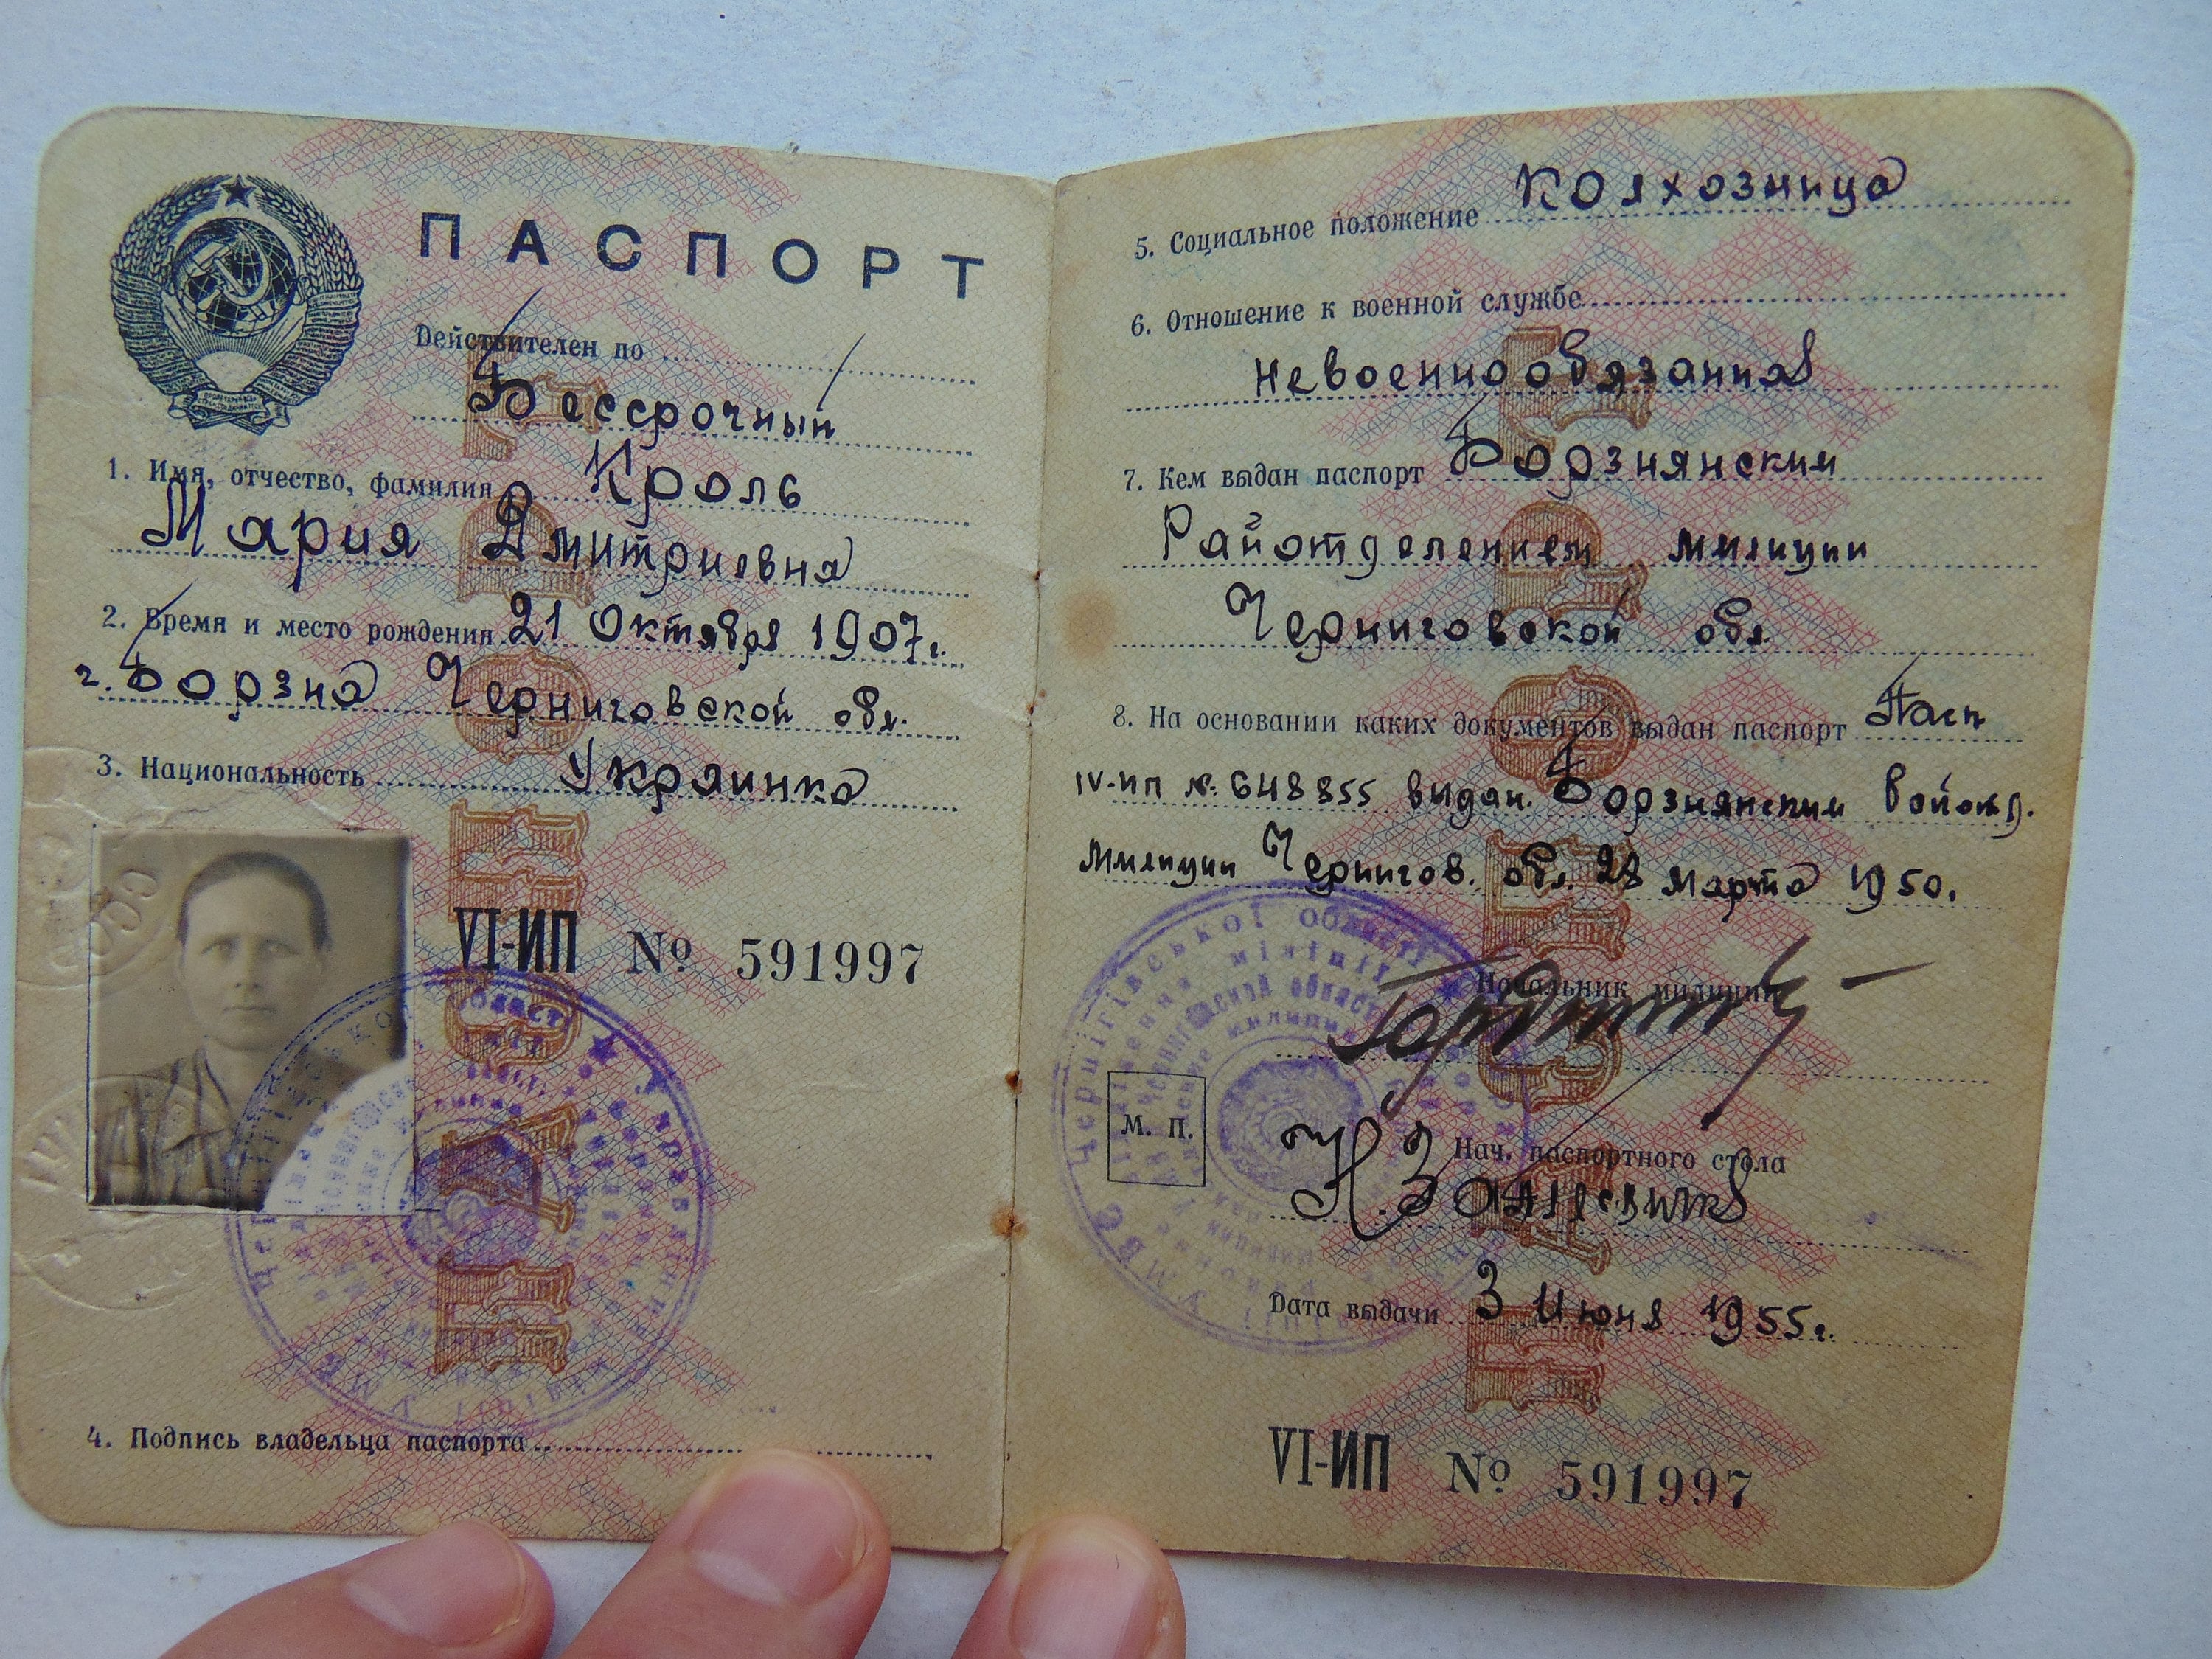 ПАСПОРТ
Действителен по
Бессрочный
1. Имя, отчество, фамилия Кроль
Мария Дмитриевна
2. Время и место рождения 21 Октября 1907г.
г. Борзна Черниговской обл.
3. Национальность Украинка
VI-ИП № 591997
4. Подпись владельца паспорта
ПАСПОРТ
5. Социальное положение Колхозница
6. Отношение к военной службе
невоеннообязанная
7. Кем выдан паспорт Борзнянским
Райотделением милиции
Черниговской обл.
8. На основании каких документов выдан паспорт Пасп
IV-ИП №. 648855 выдан. Борзнянским Райотд.
милиции Чернигов. обл. 28 марта 1950.
Начальник милиции
М. П.
Нач. паспортного стола
Дата выдачи 3 Июня 1955г.
VI-ИП № 591997
ПАСПОРТ